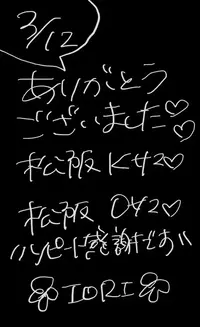 3/12
ありがとう
ございました♡♡
松阪 K42♡
松阪 O42♡
リピート感謝だお
IORI